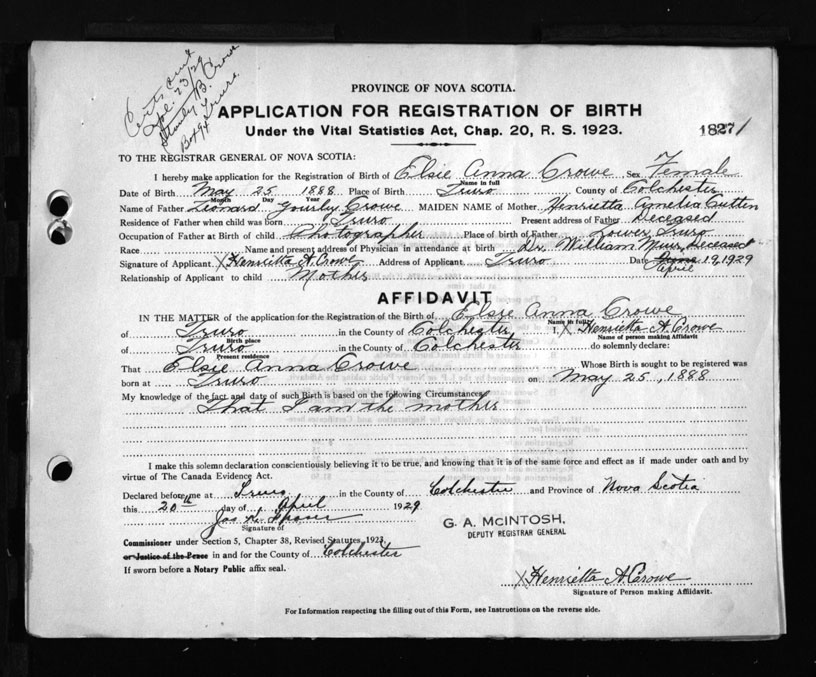 Certs. sent
Apl. 23/29
Stanley B. Crowe
Box 94 Truro.
PROVINCE OF NOVA SCOTIA.
APPLICATION FOR REGISTRATION OF BIRTH
Under the Vital Statistics Act, Chap. 20, R. S. 1923.
18271
TO THE REGISTRAR GENERAL OF NOVA SCOTIA:
I hereby make application for the Registration of Birth of Elsie Anna Crowe Sex Female
Name in full
Date of Birth May 25 1888 Place of Birth Truro County of Colchester
Month Day Year
Name of Father Leonard Crowe MAIDEN NAME of Mother Henrietta Amelia Cutten
Residence of Father when child was born Truro Present address of Father Deceased
Occupation of Father at Birth of child Photographer Place of birth of Father Lower Truro
Race Name and present address of Physician in attendance at birth Dr. William Muir, Deceased
Signature of Applicant X Henrietta A. Crowe Address of Applicant Truro Date 19, 1929
April
Relationship of Applicant to child Mother
AFFIDAVIT
IN THE MATTER of the application for the Registration of the Birth of Elsie Anna Crowe
Name in full
of Truro in the County of Colchester, I, X Henrietta A. Crowe
Birth place Name of person making Affidavit
of Truro in the County of Colchester do solemnly declare:
Present residence
That Elsie Anna Crowe Whose Birth is sought to be registered was
born at Truro on May 25, 1888
My knowledge of the fact and date of such Birth is based on the following Circumstances
That I am the mother
I make this solemn declaration conscientiously believing it to be true, and knowing that it is of the same force and effect as if made under oath and by
virtue of The Canada Evidence Act.
Declared before me at Truro in the County of Colchester and Province of Nova Scotia
this 20th day of April 1929
Signature of
G. A. McINTOSH,
DEPUTY REGISTRAR GENERAL
Commissioner under Section 5, Chapter 38, Revised Statutes, 1923,
or Justice of the Peace in and for the County of Colchester
If sworn before a Notary Public affix seal.
X Henrietta A. Crowe
Signature of Person making Affidavit.
For Information respecting the filling out of this Form, see Instructions on the reverse side.